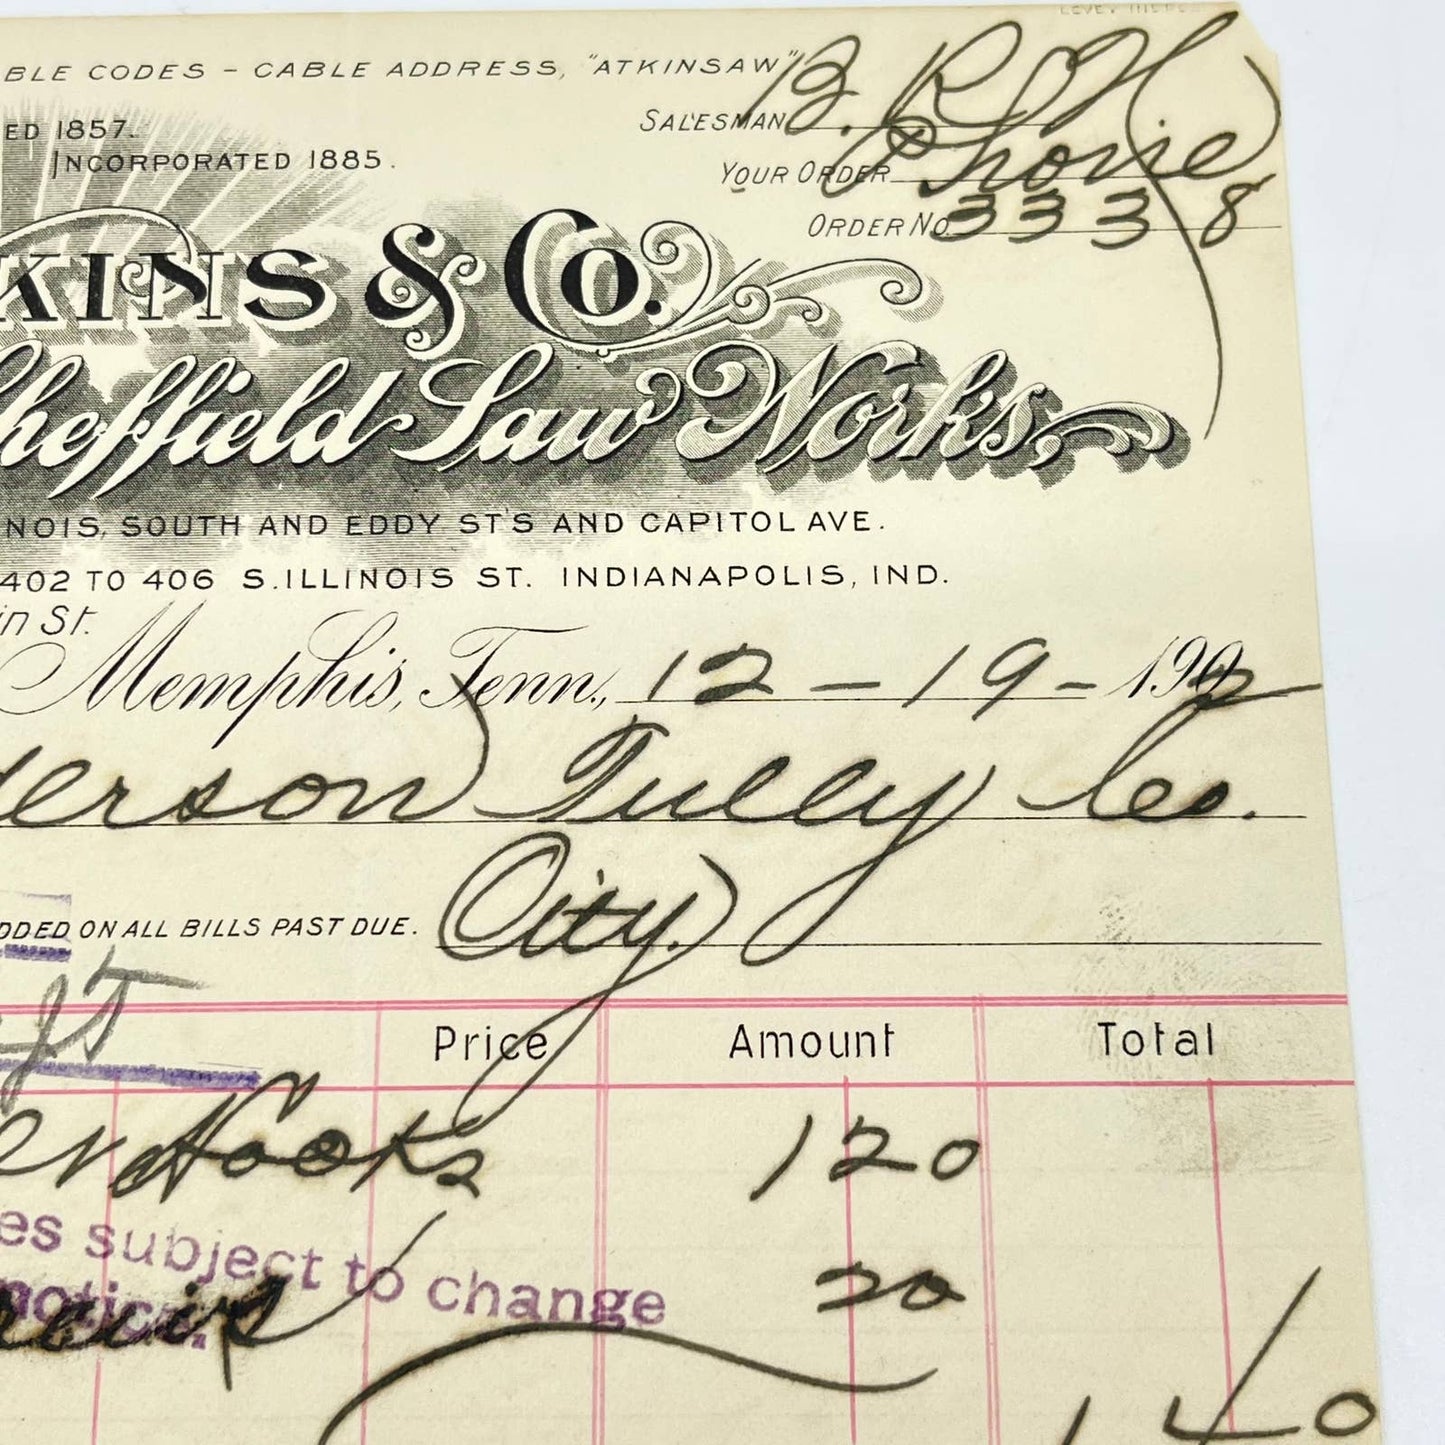 BLE CODES - CABLE ADDRESS, "ATKINSAW"
SALESMAN B. R.
ED 1857.
INCORPORATED 1885.
YOUR ORDER Phone
ORDER NO. 3338
KINS & CO.
Sheffield Saw Works,
NOIS, SOUTH AND EDDY ST'S AND CAPITOL AVE.
402 TO 406 S. ILLINOIS ST. INDIANAPOLIS, IND.
in St.
Memphis, Tenn., 12-19-1902
derson Tully Co.
DDED ON ALL BILLS PAST DUE. City.
Price Amount Total
Hooks 120
es subject to change
notice.
20
140